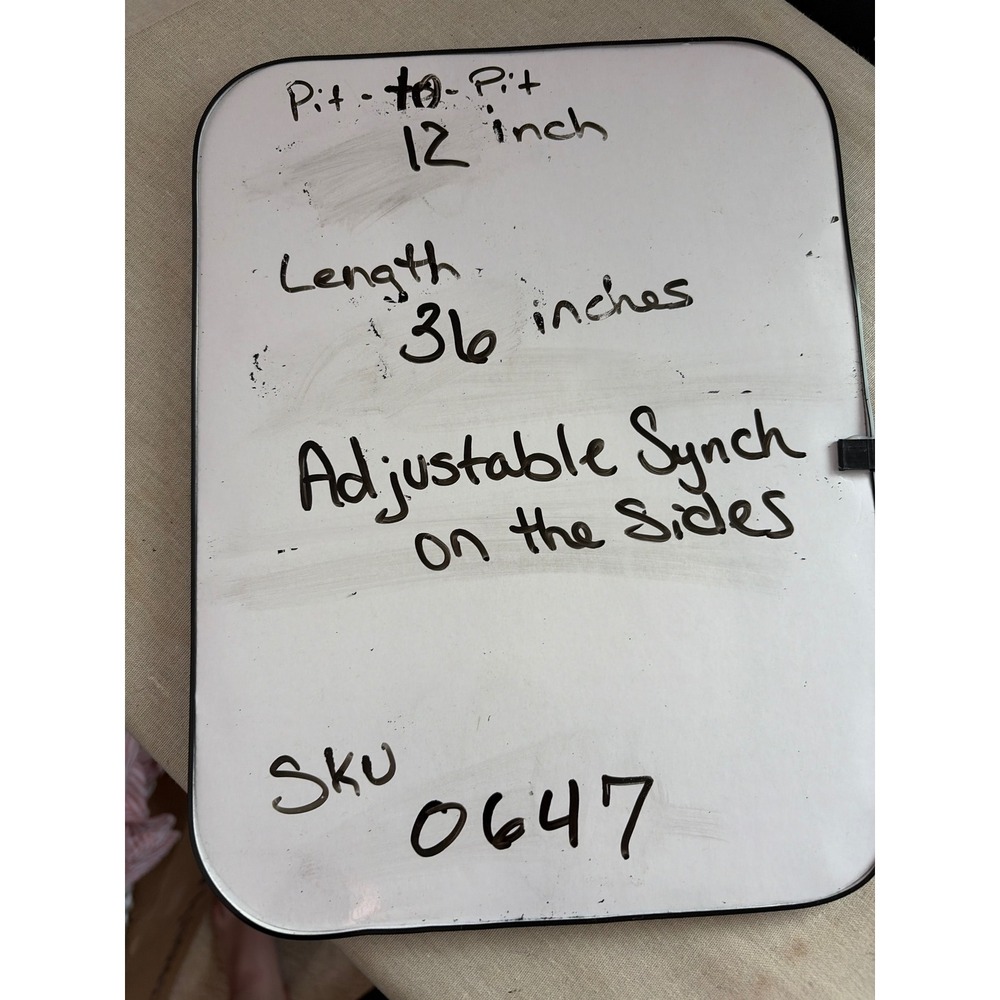 Pit-to-Pit
12 inch
Length
36 inches
Adjustable Synch
on the Sides
SKU
0647